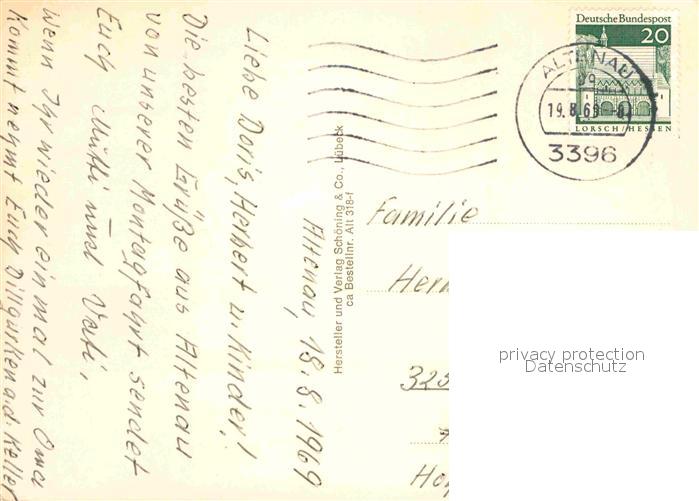 Altenau, 18.8.1969
Liebe Doris, Herbert u. Kinder!
Die besten Grüße aus Altenau
von unserer Montagfahrt sendet
Euch Mutti und Vati,
Wenn Ihr wieder einmal zur Oma
kommt nehmt Euch Dillgurken a.d. Keller
Hersteller und Verlag Schöning & Co., Lübeck
ca Bestellnr. Alt 318-f
Deutsche Bundespost
20
LORSCH/HESSEN
ALTENAU
19.8.69 -8
3396
Familie
Her
325
Ho
privacy protection
Datenschutz